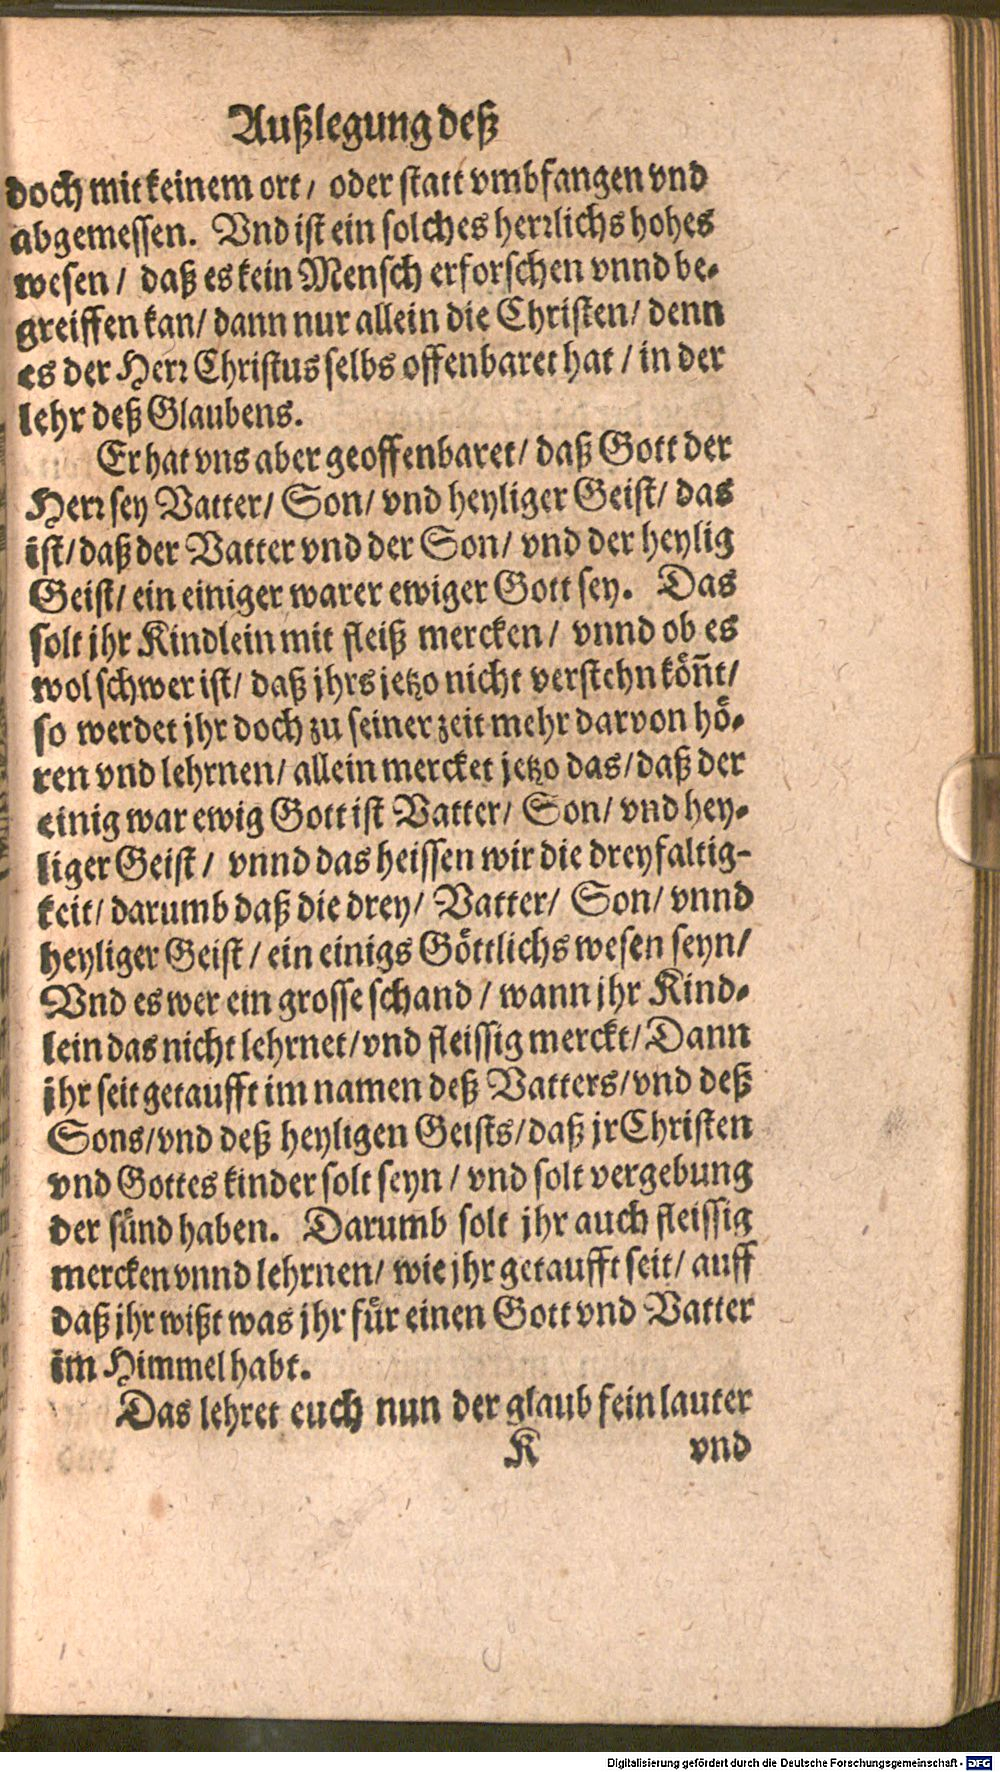 Außlegung deß
doch mit keinem ort / oder statt vmbfangen vnd
abgemessen. Vnd ist ein solches herrlichs hohes
wesen / daß es kein Mensch erforschen vnnd be-
greiffen kan / dann nur allein die Christen / denn
es der Herr Christus selbs offenbaret hat / in der
lehr deß Glaubens.
Er hat vns aber geoffenbaret / daß Gott der
Herr sey Vatter / Son / vnd heyliger Geist / das
ist / daß der Vatter vnd der Son / vnd der heylig
Geist / ein einiger warer ewiger Gott sey. Das
solt jhr Kindlein mit fleiß mercken / vnnd ob es
wol schwer ist / daß jhrs jetzo nicht verstehn kön̄t /
so werdet jhr doch zu seiner zeit mehr darvon hö-
ren vnd lehrnen / allein mercket jetzo das / daß der
einig war ewig Gott ist Vatter / Son / vnd hey-
liger Geist / vnnd das heissen wir die dreyfaltig-
keit / darumb daß die drey / Vatter / Son / vnnd
heyliger Geist / ein einigs Göttlichs wesen seyn /
Vnd es wer ein grosse schand / wann jhr Kind-
lein das nicht lehrnet / vnd fleissig merckt / Dann
jhr seit getaufft im namen deß Vatters / vnd deß
Sons / vnd deß heyligen Geists / daß jr Christen
vnd Gottes kinder solt seyn / vnd solt vergebung
der sünd haben. Darumb solt jhr auch fleissig
mercken vnnd lehrnen / wie jhr getaufft seit / auff
daß jhr wißt was jhr für einen Gott vnd Vatter
im Himmel habt.
Das lehret euch nun der glaub fein lauter
K vnd
Digitalisierung gefördert durch die Deutsche Forschungsgemeinschaft - DFG